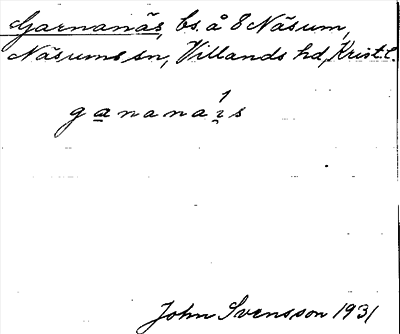 Garnanäs, bs. å 8 Näsum,
Näsums sn, Villands hd, Krist. l.
gananaıs
John Svensson 1931